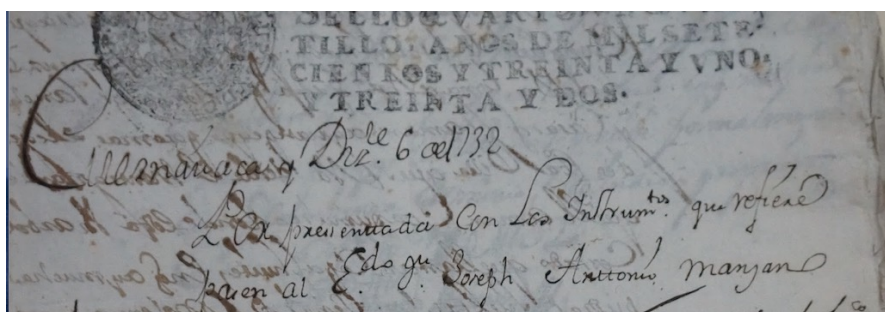 SELLO QVARTO
TILLO: AÑOS DE MIL SETE-
CIENTOS Y TREINTA Y VNO:
Y TREINTA Y DOS.
y Dize. 6 de 1732
Por presentada Con Los Instrumtos. que refiere
pasen al Edo gu. Joseph Anttonio Manjan